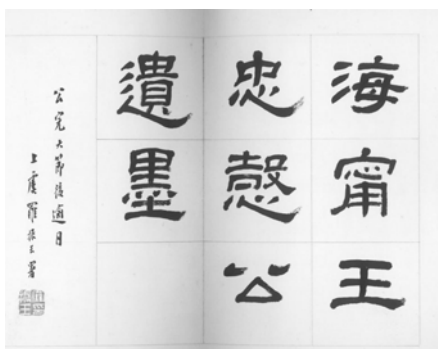 海甯王
忠愨公
遺墨
公完大節後逾月
上虞羅振玉署